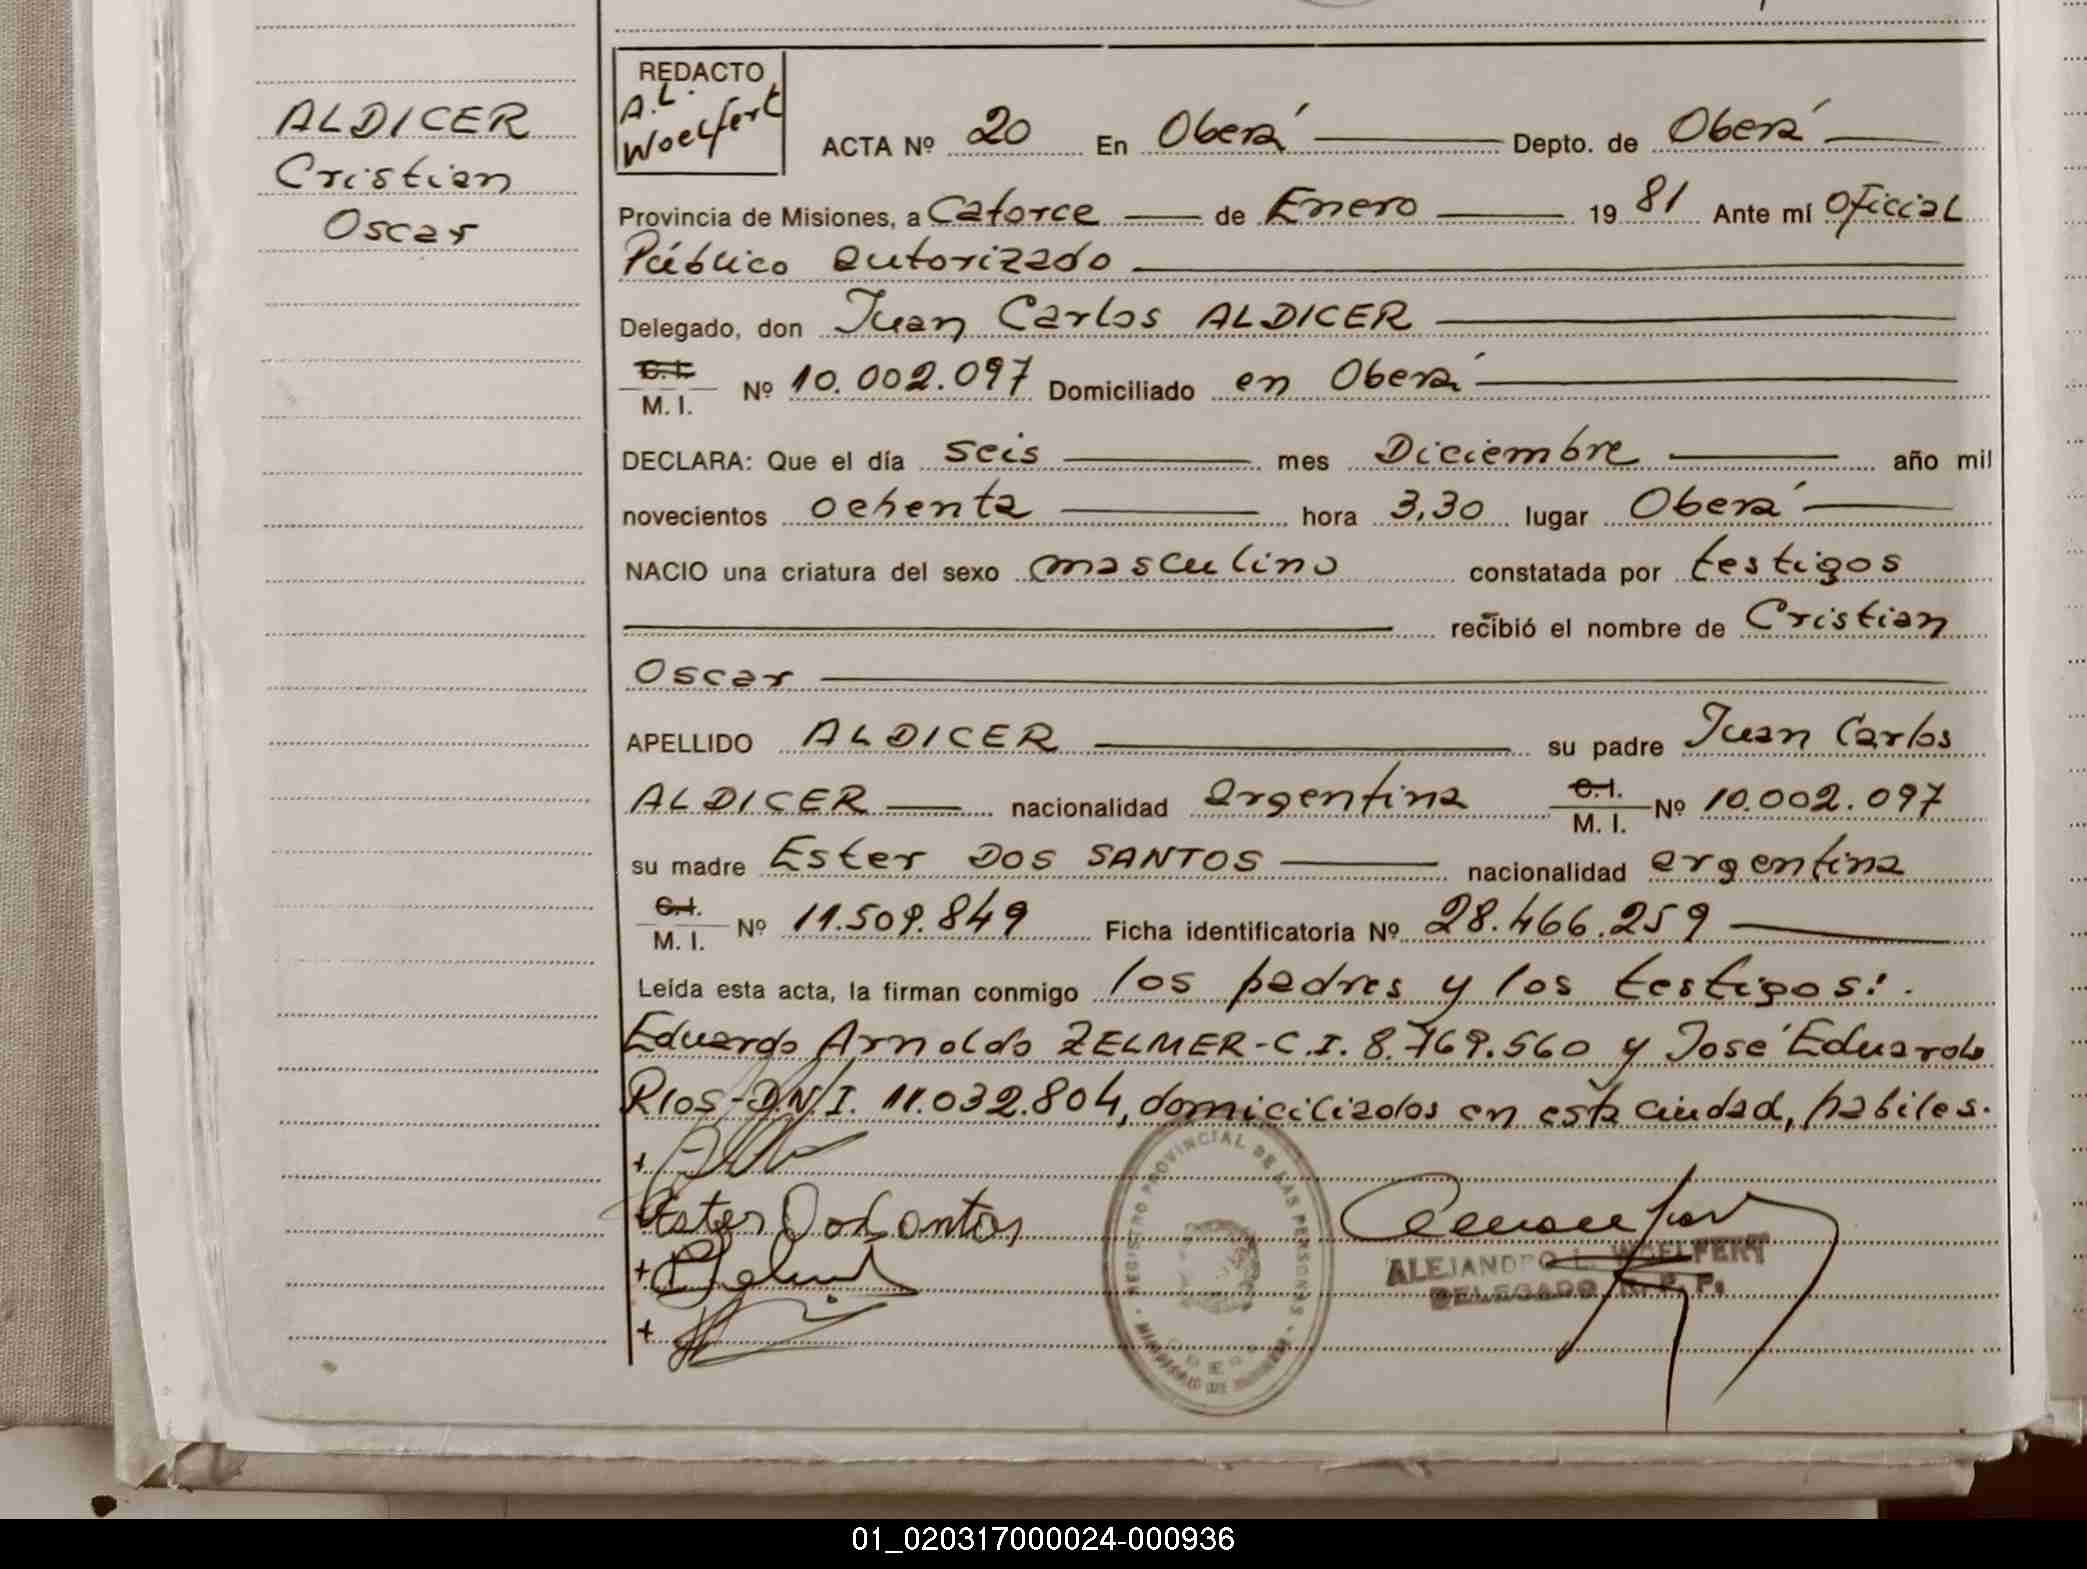 ALDICER
Cristian
Oscar
REDACTO
A.L.
Woelfert
ACTA Nº 20 En Oberá Depto. de Oberá
Provincia de Misiones, a Catorce de Enero 1981 Ante mí Oficial
Público autorizado
Delegado, don Juan Carlos ALDICER
C.I.
M. I. Nº 10.002.097 Domiciliado en Oberá
DECLARA: Que el día seis mes Diciembre año mil
novecientos ochenta hora 3,30 lugar Oberá
NACIO una criatura del sexo masculino constatada por testigos
recibió el nombre de Cristian
Oscar
APELLIDO ALDICER su padre Juan Carlos
ALDICER nacionalidad argentina C.I. M. I. Nº 10.002.097
su madre Ester DOS SANTOS nacionalidad argentina
C.I.
M. I. Nº 11.509.849 Ficha identificatoria Nº 28.466.259
Leída esta acta, la firman conmigo los padres y los testigos:
Eduardo Arnoldo ZELMER-C.I. 8.769.560 y José Eduardo
RIOS-D.N.I. 11.032.804, domiciliados en esta ciudad, habiles.
Ester Dos Santos
REGISTRO PROVINCIAL DE LAS PERSONAS
MINISTERIO DE GOBIERNO
ALEJANDRO L. WOELFERT
DELEGADO R. P. P.
01_020317000024-000936